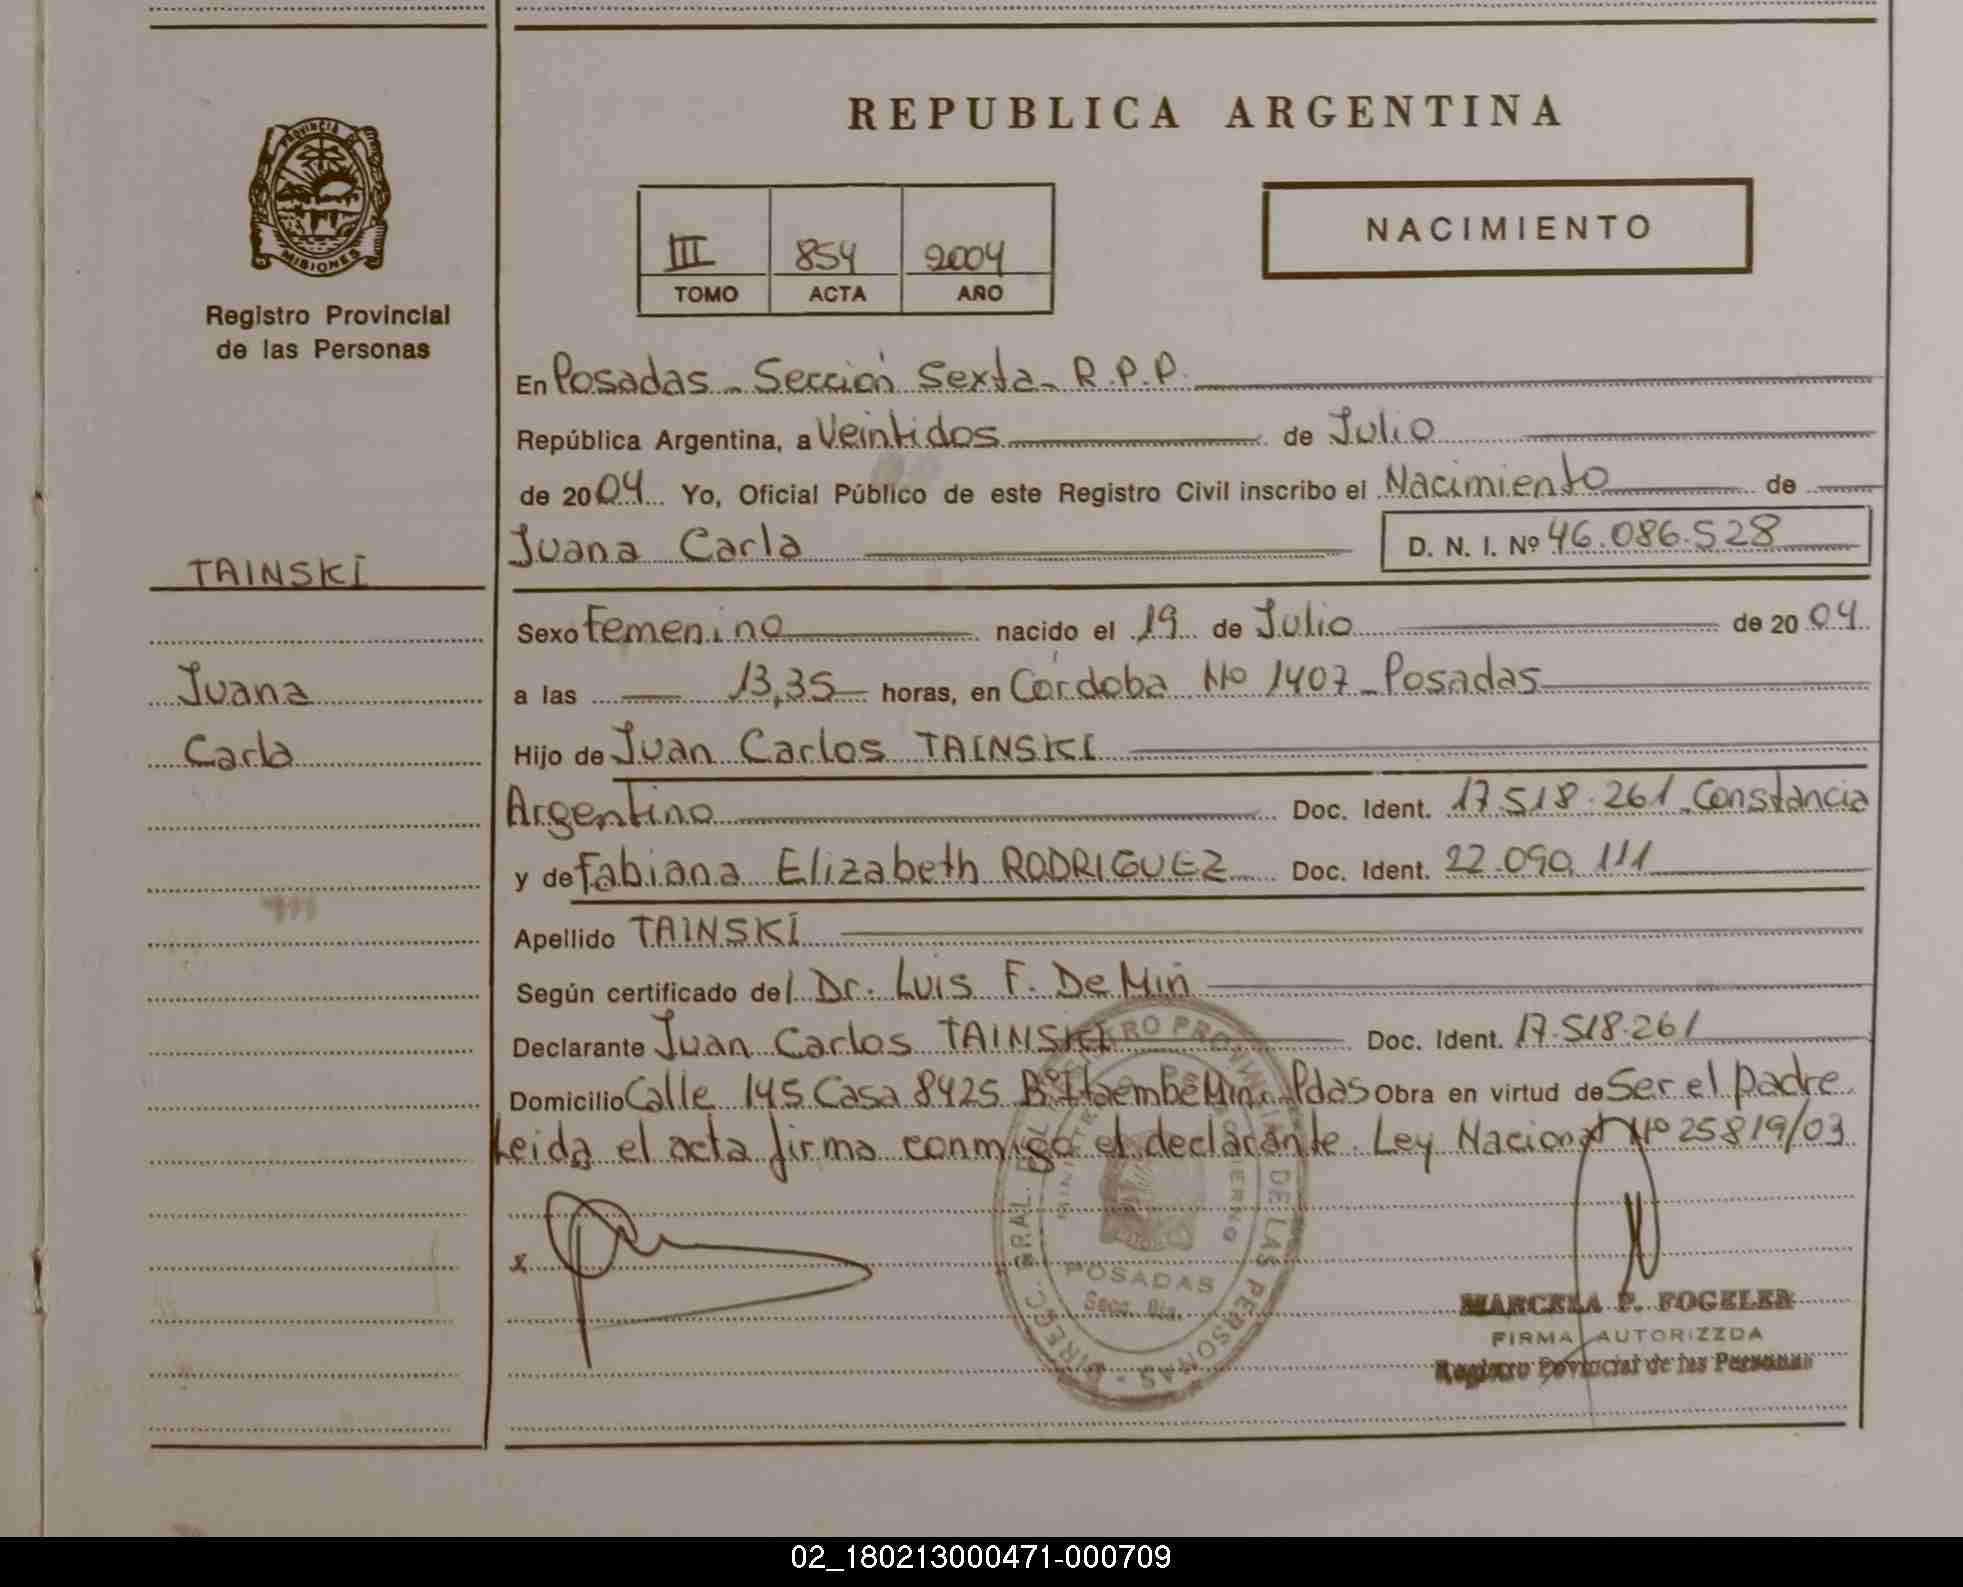 PROVINCIA DE
MISIONES
Registro Provincial
de las Personas
TAINSKI
Juana
Carla
REPUBLICA ARGENTINA
III 854 2004
TOMO ACTA AÑO
NACIMIENTO
En Posadas - Sección Sexta - R.P.P.
República Argentina, a Veintidos de Julio
de 2004 Yo, Oficial Público de este Registro Civil inscribo el Nacimiento de
Juana Carla D. N. I. Nº 46.086.528
Sexo Femenino nacido el 19 de Julio de 2004
a las 13,35 horas, en Córdoba No 1407 - Posadas
Hijo de Juan Carlos TAINSKI
Argentino Doc. Ident. 17.518.261 - Constancia
y de Fabiana Elizabeth RODRIGUEZ Doc. Ident. 22.090.111
Apellido TAINSKI
Según certificado del Dr. Luis F. De Min
Declarante Juan Carlos TAINSKI Doc. Ident. 17.518.261
Domicilio Calle 145 Casa 8425 Bº Itaembé Mini Pdas Obra en virtud de Ser el padre
Leida el acta firma conmigo el declarante. Ley Nacional Nº 25819/03
x
DIRECC. GRAL. DEL REGISTRO PROVINCIAL DE LAS PERSONAS
MINISTRO DE GOBIERNO
POSADAS
Secc. 6ta.
MARCELA P. FOGELER
FIRMA AUTORIZZDA
Registro Provincial de las Personas
02_180213000471-000709